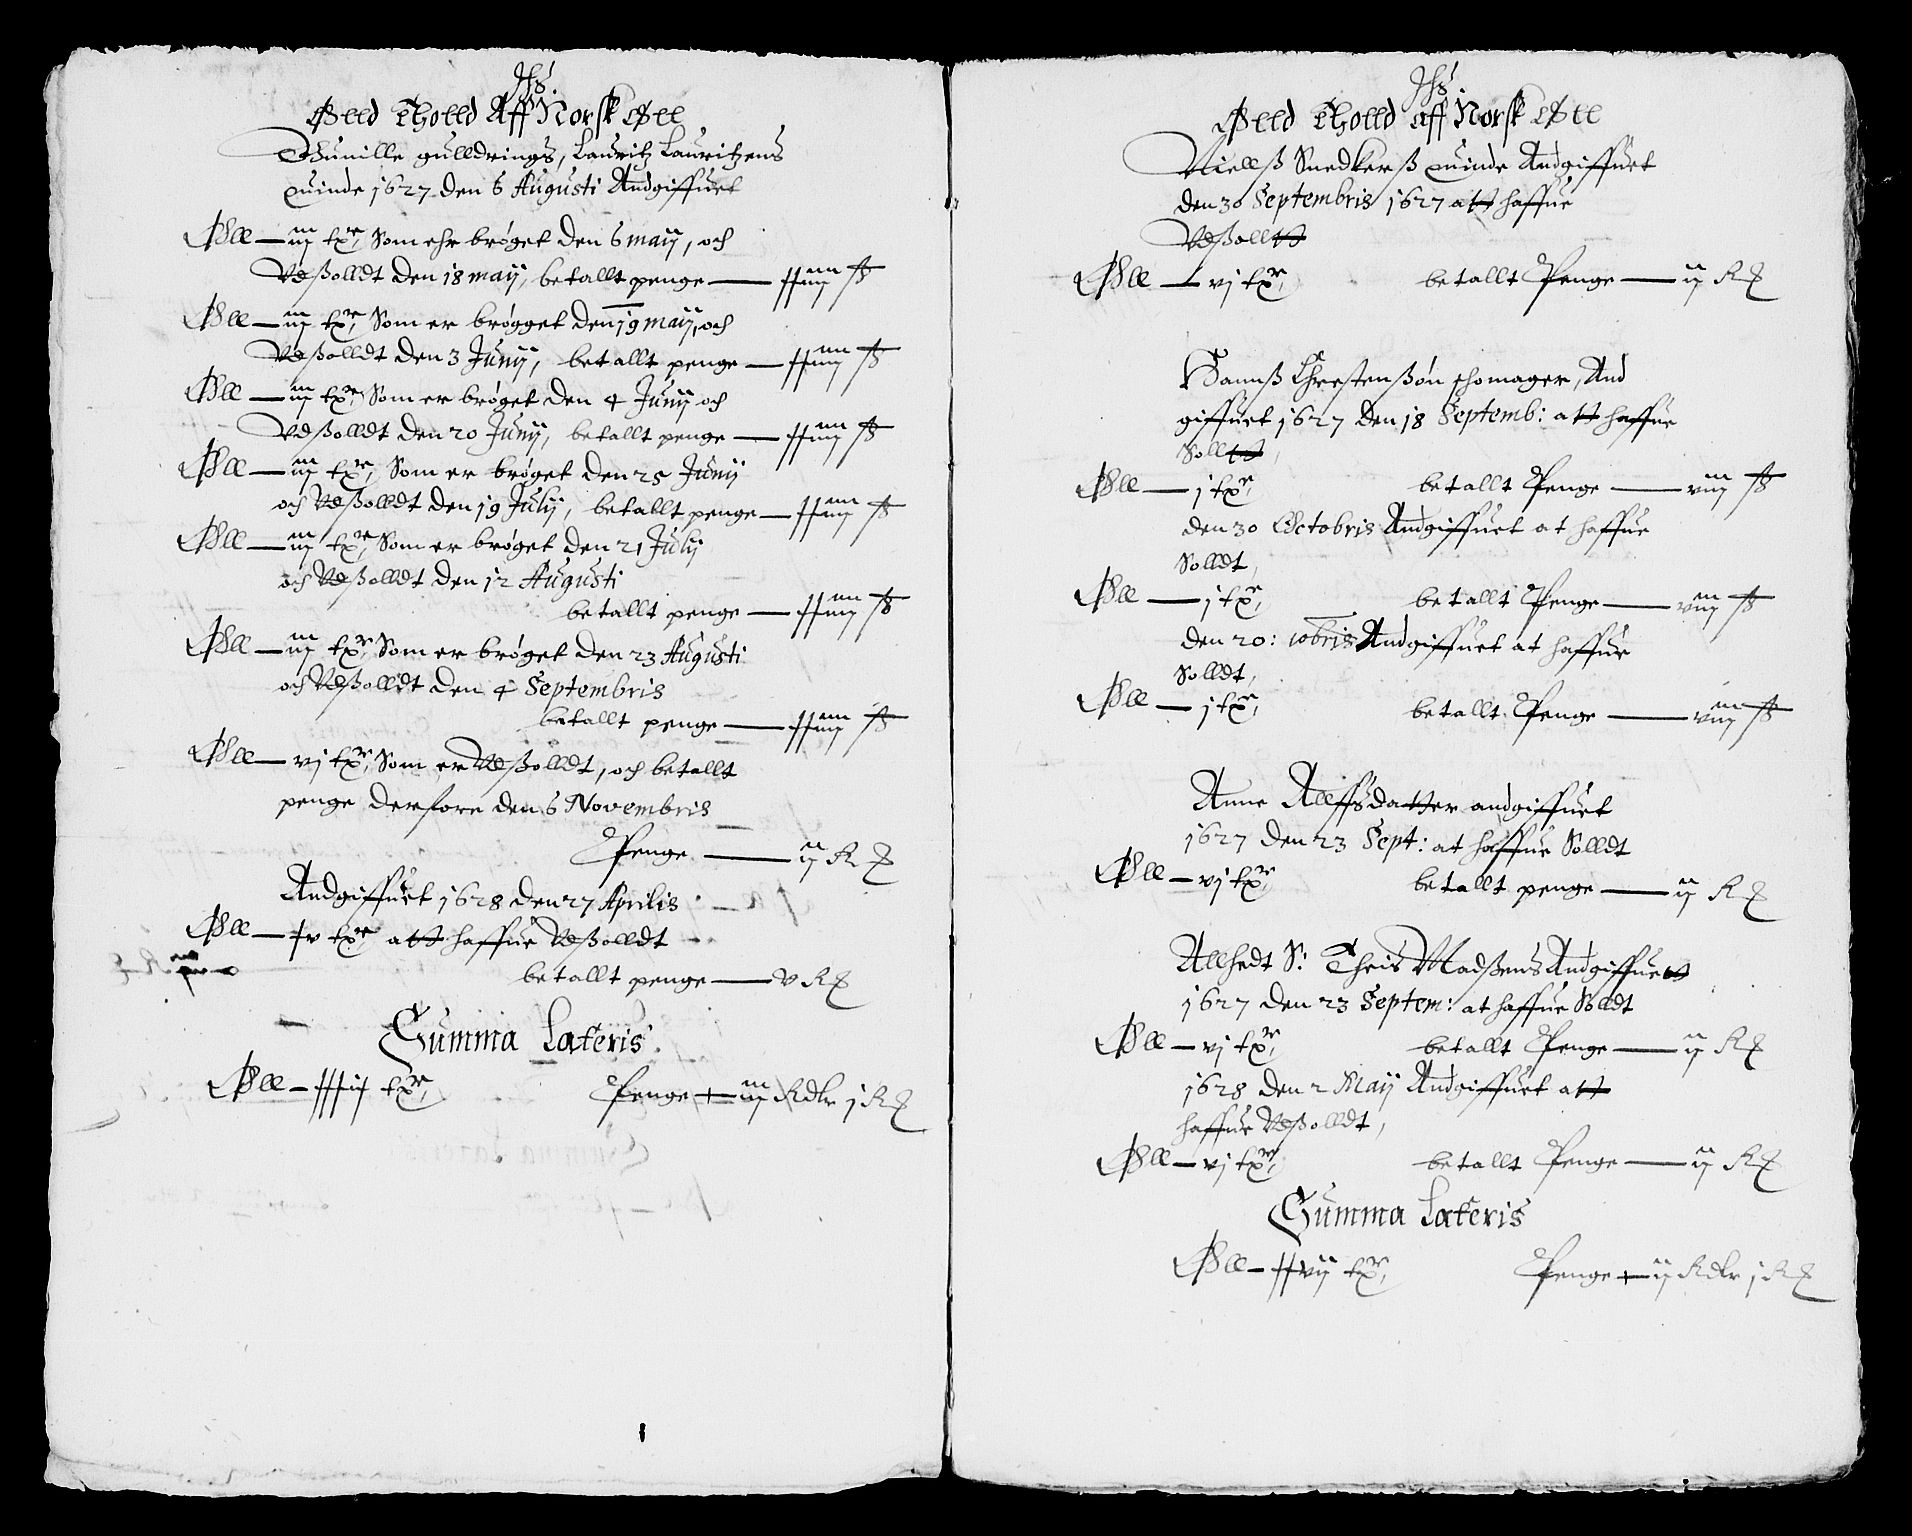 Jhs.
Øell Tholld Aff Norsk Øell
Gunille gulldrings, Lauritz Lauritzens
quinde 1627 den 6 Augusti Andgiffuet
Øll — iiij tɣr, Som ehr brøget den 6 maij, och
Vdßolldt den 18 maij, betallt penge — xxiiij ß
Øll — iiij tɣr, Som er brøgget den 19 maij, och
Vdßolldt den 3 Junij, betallt penge — xxiiij ß
Øll — iiij tɣr, Som er brøget den 4 Junij och
Vdßolldt den 20 Junij, betallt penge — xxiiij ß
Øll — iiij tɣr, Som er brøget den 25 Junij
och Vdßolldt den 19 Julij, betallt penge — xxiiij ß
Øll — iiij tɣr, Som er brøget den 21 Julij
och Vdßolldt den 12 Augusti
betallt penge — xxiiij ß
Øll — iiij tɣr, Som er brøget den 23 Augusti
och Vdßolldt den 4 Septembris
betallt penge — xxiiij ß
Øll — vj tɣr, Som er Vdßolldt, och betallt
penge derfore den 6 Novembris
Penge — ij R
Andgiffuet 1628 den 27 Aprilis
Øll — xv tɣr att haffue Vdßolldt
betallt penge — v R
Summa Lateris
Øll — tɣr, Penge — iiij Rdlr j R
Jhs.
Øell Tholld aff Norsk Øell
Nielß Snedkerß quinde Andgiffuet
den 30 Septembris 1627 att haffue
Vdßolltt
Øll — vj tɣr, betallt Penge — ij R
Hannß Chrestenßøn schomager, And
giffuet 1627 den 18 Septemb: att haffue
Solltt,
Øll — j tɣr, betallt Penge — viij ß
den 30 Octobris Andgiffuet at haffue
Solldt,
Øll — j tɣr, betallt Penge — viij ß
den 20: 10bris Andgiffuet at haffue
Solldt,
Øll — j tɣr, betallt Penge — viij ß
Anne Allffsdatter andgiffuet
1627 den 23 Sept: at haffue Solldt
Øll — vj tɣr, betallt penge — ij R
Allhedt S: Theis Madßens Andgiffuett
1627 den 23 Septem: at haffue Solldt
Øll — vj tɣr, betallt Penge — ij R
1628 den 2 Maij Andgiffuet att
haffue Vdßolldt,
Øll — vj tɣr, betallt Penge — ij R
Summa Lateris
Øll — xxvij tɣr, Penge — ij Rdlr j R